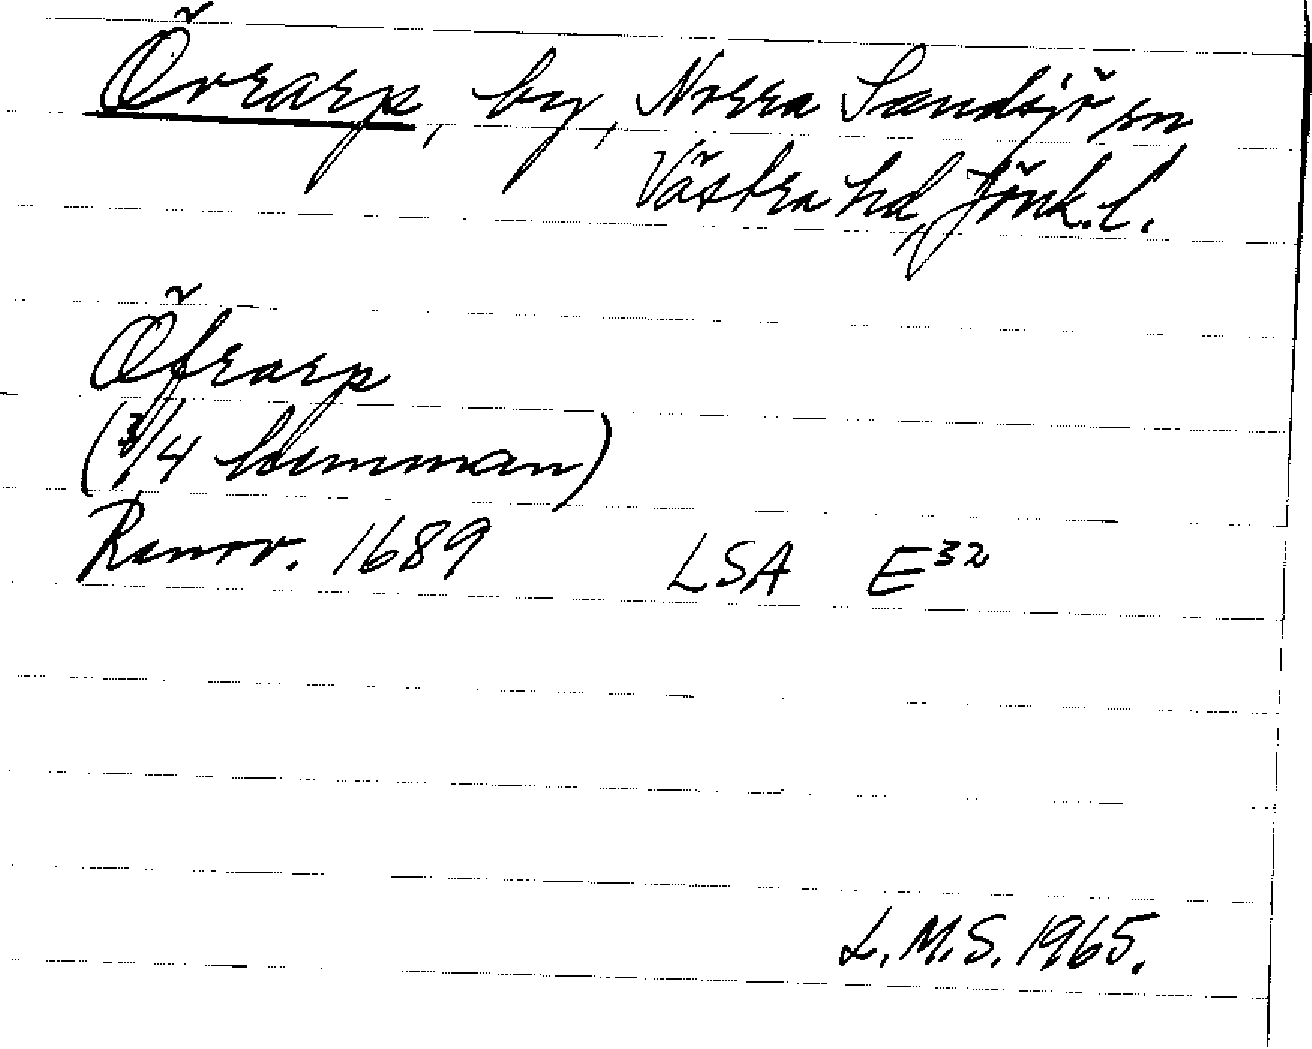 Övrarp, by, Norra Sandsjö sn
Västra hd, Jönk. l.
Öfrarp
(3/4 hemman)
Renov. 1689 LSA E32
L.M.S. 1965.